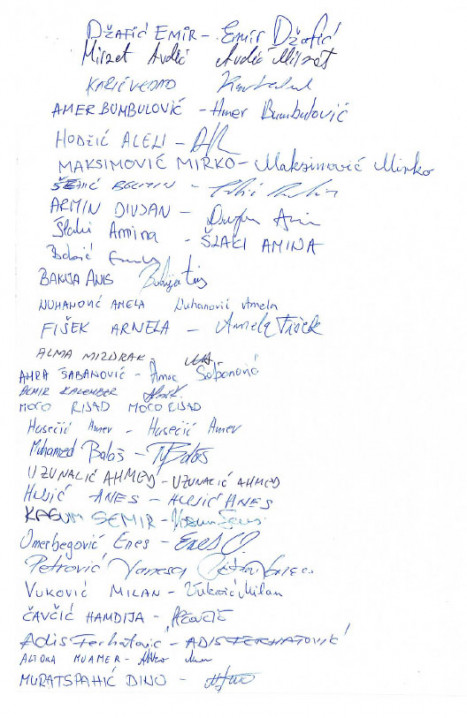 DŽAFIĆ EMIR - Emir Džafić
Mirzet Avdić Avdić Mirzet
KARIĆ VEDAD
AMER BUMBULOVIĆ - Amer Bumbulović
HODŽIĆ ALELI -
MAKSIMOVIĆ MIRKO - Maksimović Mirko
ARMIN DIVJAN -
Šlaki Amina - ŠLAKI AMINA
BAKIJA ANIS
NUHANOVIĆ AMELA Nuhanović Amela
FIŠEK ARNELA - Arnela Fišek
ALMA MIZDRAK
AMRA ŠABANOVIĆ - Amra Šabanović
DEMIR KALENDER
MOCO RIJAD MOCO RIJAD
Husečić Amer - Husečić Amer
Muhamed Baloš - M Baloš
UZUNALIĆ AHMED - UZUNALIĆ AHMED
HUJIĆ ANES - HUJIĆ ANES
KASUM SEMIR -
Omerbegović Enes - Enes O.
Petrović Vanesa
VUKOVIĆ MILAN - Vuković Milan
ČAVČIĆ HAMDIJA -
Adis Ferhatović - ADIS FERHATOVIĆ
MUAMER -
MURATSPAHIĆ DINO -